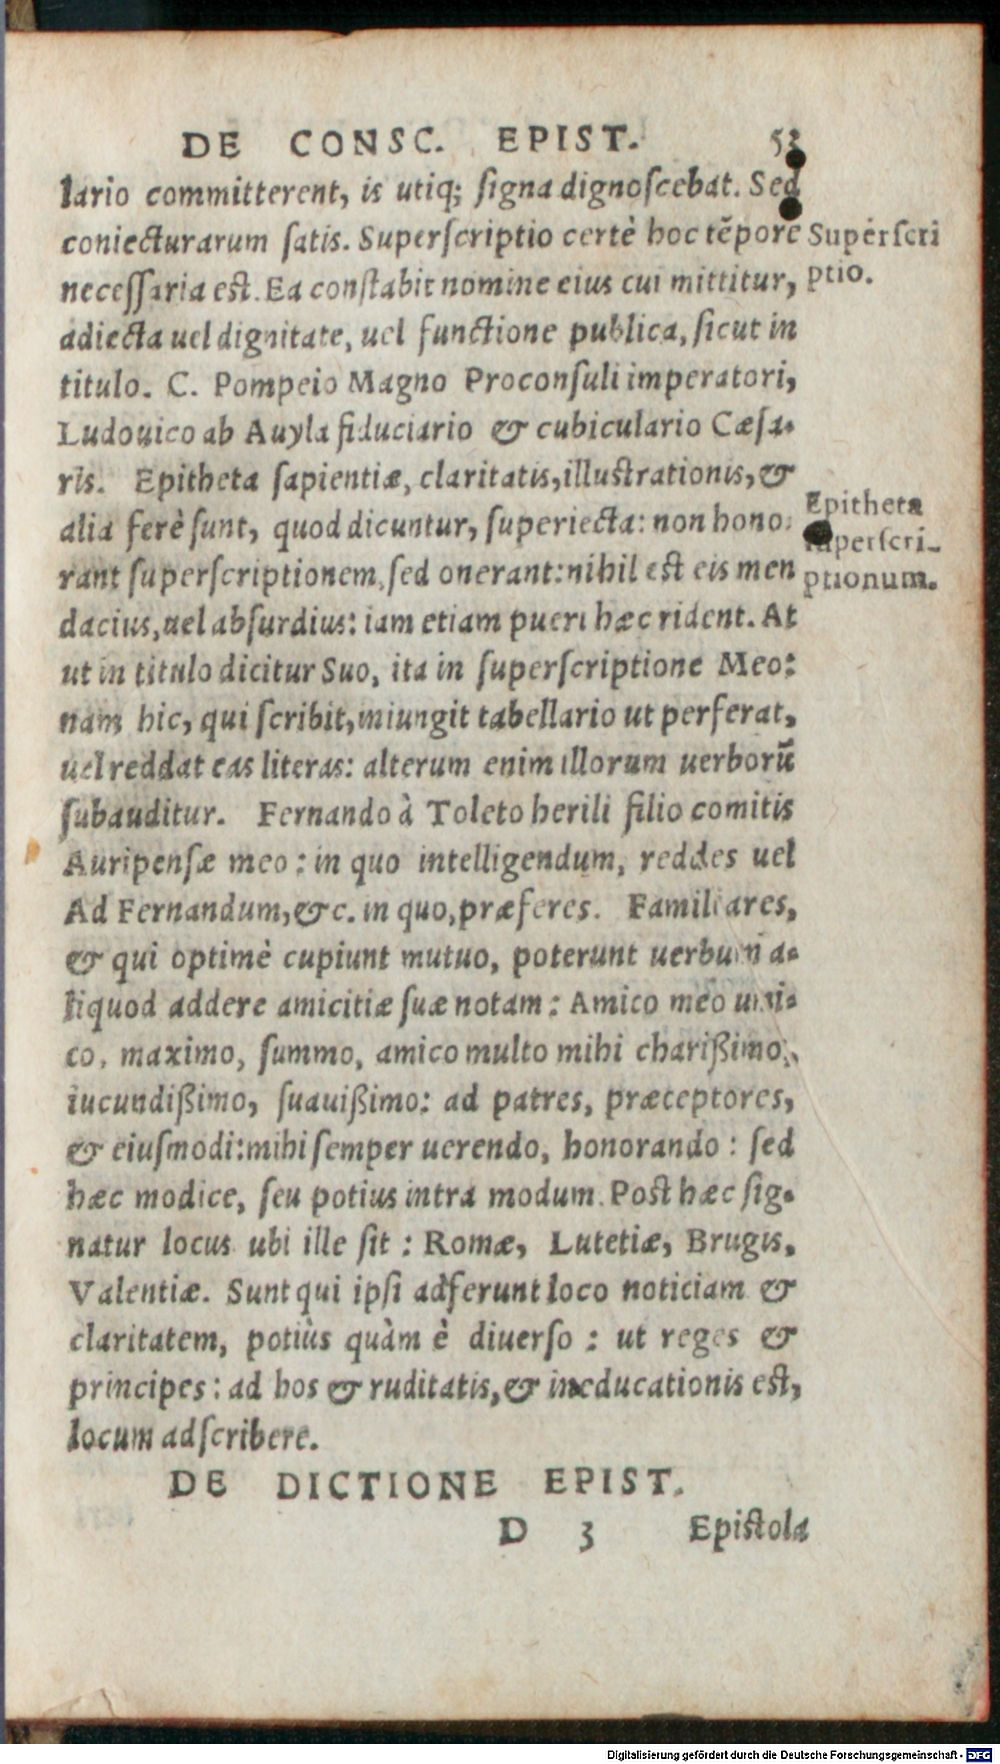 DE CONSC. EPIST. 53
lario committerent, is utiq; ſigna dignoſcebat. Sed
coniecturarum ſatis. Superſcriptio certè hoc tẽpore
neceſſaria eſt. Ea conſtabit nomine eius cui mittitur,
adiecta uel dignitate, uel functione publica, ſicut in
titulo. C. Pompeio Magno Proconſuli imperatori,
Ludouico ab Auyla fiduciario & cubiculario Cæſa-
ris. Epitheta ſapientiæ, claritatis, illuſtrationis, &
alia ferè ſunt, quod dicuntur, ſuperiecta: non hono-
rant ſuperſcriptionem, ſed onerant: nihil eſt eis men
dacius, uel abſurdius: iam etiam pueri hæc rident. At
ut in titulo dicitur Suo, ita in ſuperſcriptione Meo:
nam hic, qui ſcribit, iniungit tabellario ut perferat,
uel reddat eas literas: alterum enim illorum uerborũ
ſubauditur. Fernando à Toleto herili filio comitis
Auripenſæ meo: in quo intelligendum, reddes uel
Ad Fernandum, &c. in quo, præferes. Familiares,
& qui optimè cupiunt mutuo, poterunt uerbum a-
liquod addere amicitiæ ſuæ notam: Amico meo uni-
co, maximo, ſummo, amico multo mihi charißimo,
iucundißimo, ſuauißimo: ad patres, præceptores,
& eiuſmodi: mihi ſemper uerendo, honorando: ſed
hæc modice, ſeu potius intra modum. Poſt hæc ſig-
natur locus ubi ille ſit: Romæ, Lutetiæ, Brugis,
Valentiæ. Sunt qui ipſi adferunt loco noticiam &
claritatem, potiùs quàm è diuerſo: ut reges &
principes: ad hos & ruditatis, & ineducationis eſt,
locum adſcribere.
DE DICTIONE EPIST.
D 3 Epiſtola
Superſcri
ptio.
Epitheta
ſuperſcri-
ptionum.
Digitalisierung gefördert durch die Deutsche Forschungsgemeinschaft - DFG